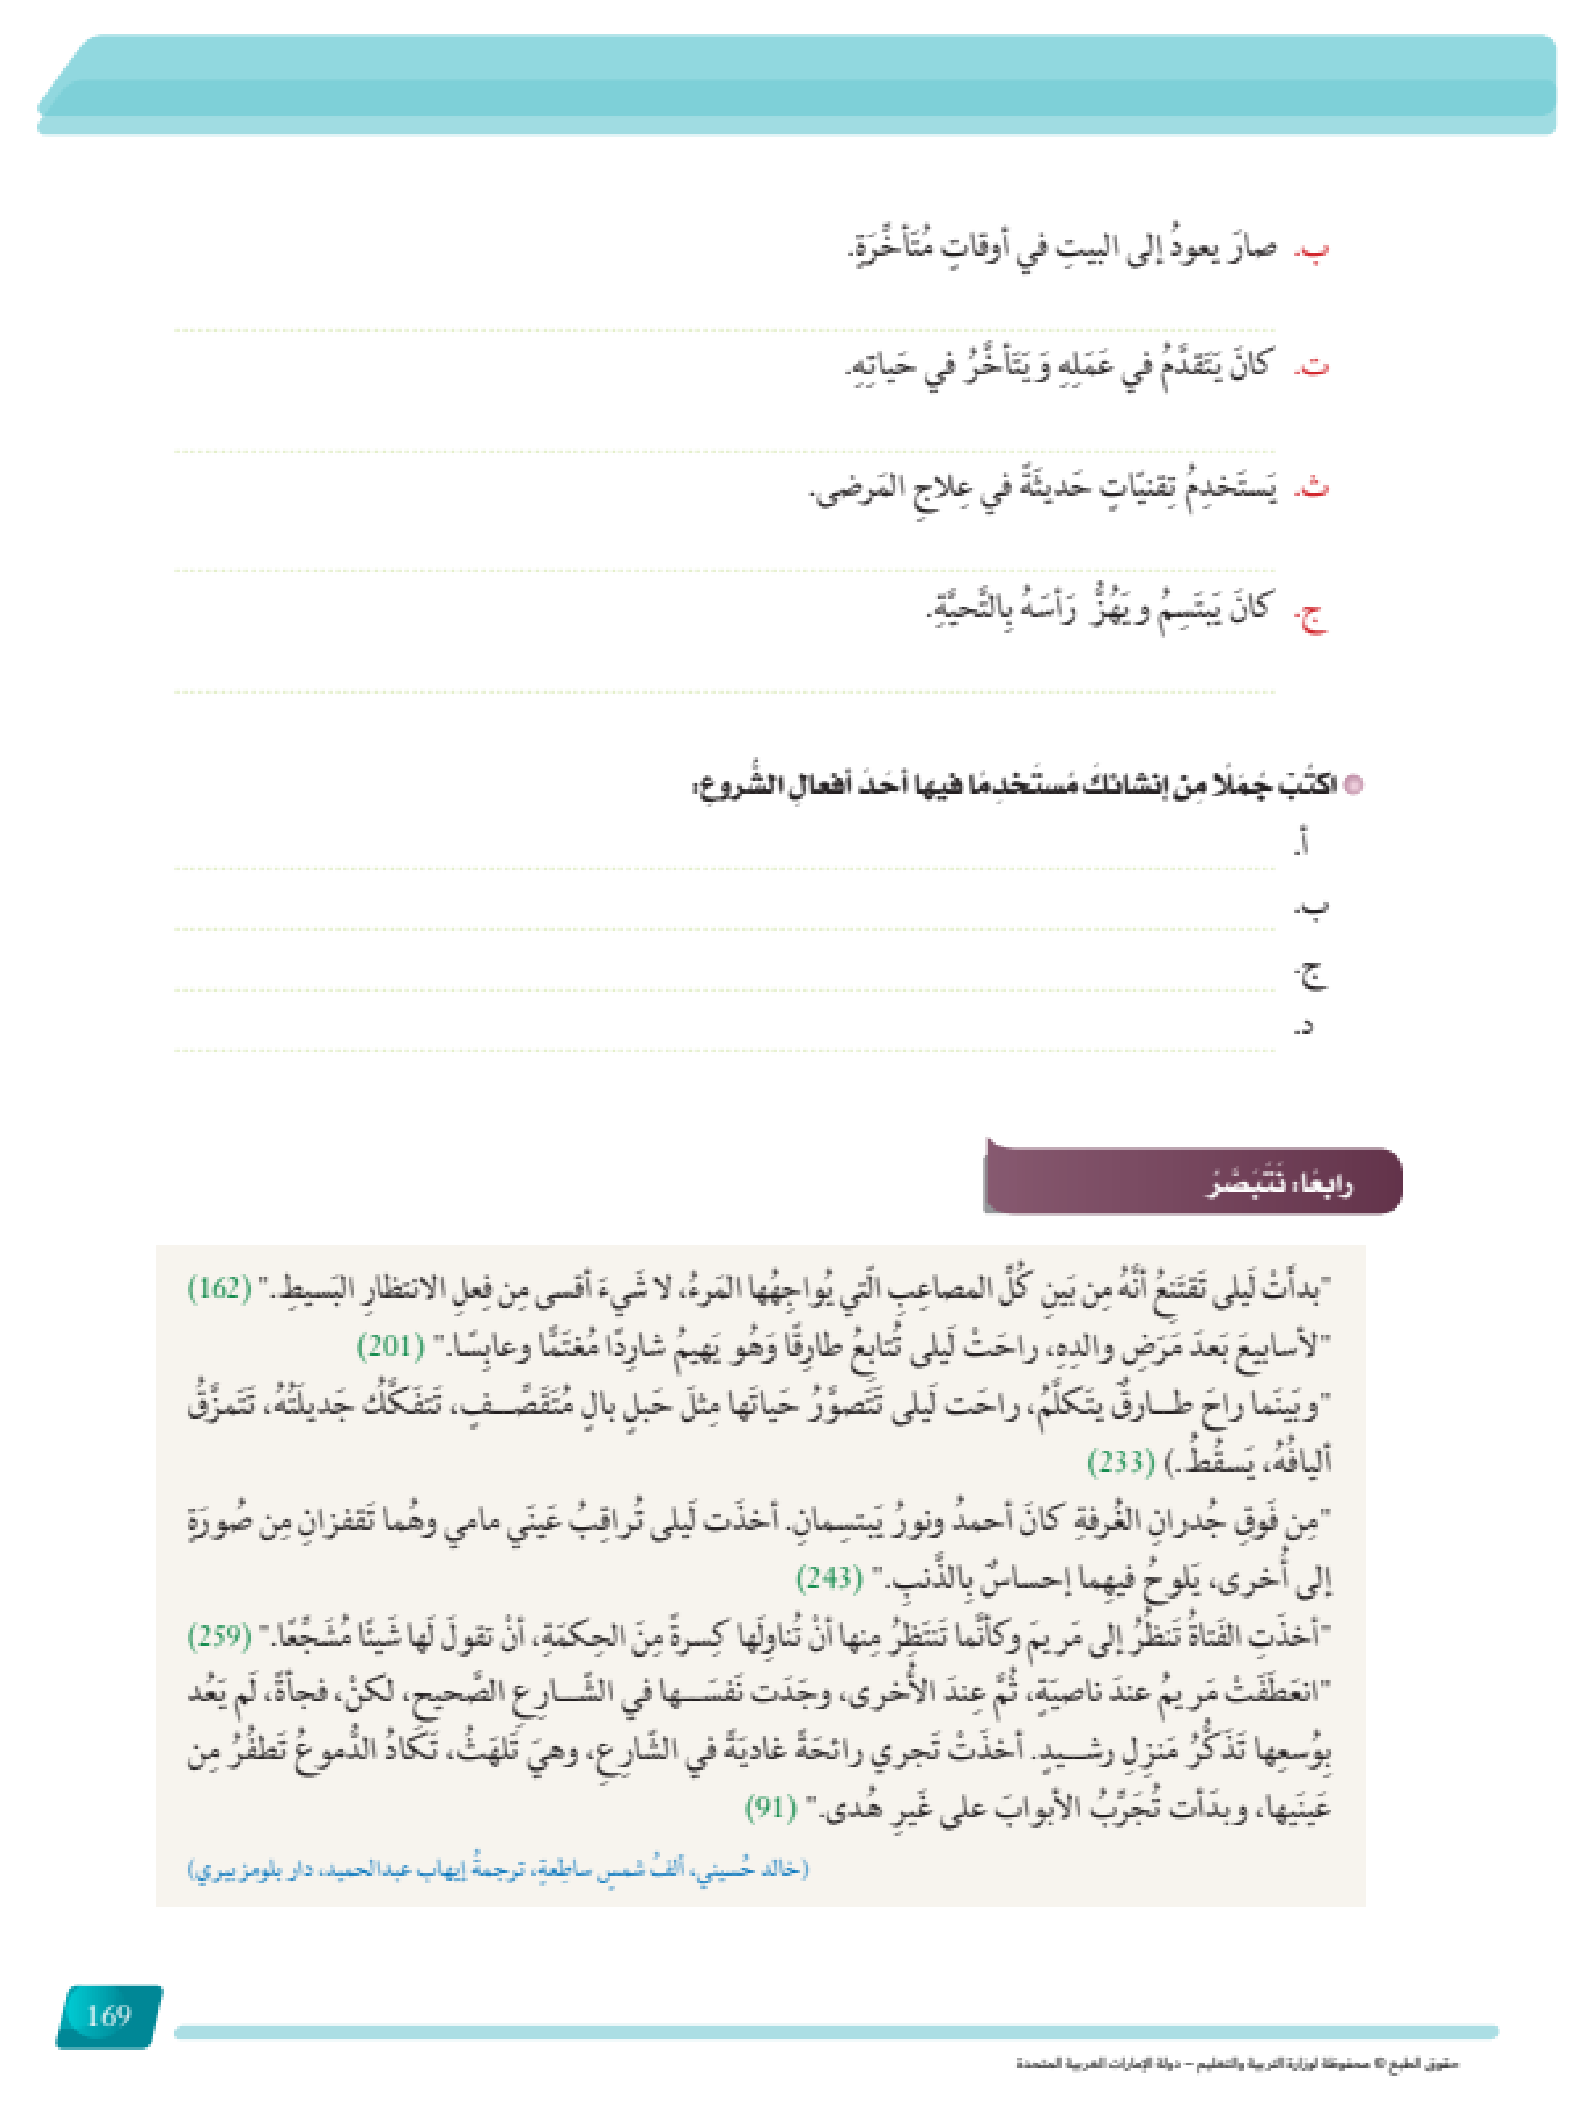 ب. صارَ يعودُ إلى البيتِ في أوقاتٍ مُتَأخِّرَةٍ.
ت. كانَ يَتَقدَّمُ في عَمَلِهِ وَ يَتَأخَّرُ في حَياتِهِ.
ث. يَستَخدِمُ تِقنيّاتٍ حَديثَةً في عِلاجِ المَرضى.
ج. كانَ يَبتَسِمُ و يَهُزُّ رَأسَهُ بِالتَّحيَّةِ.
اكتُبْ جُمَلًا مِن إنشائكَ مُستَخدِمًا فيها أحَدَ أفعالِ الشُّروعِ:
أ.
ب.
ج.
د.
رابعًا: نَتَبَصَّرُ
"بدأَتْ لَيلى تَقتَنِعُ أنَّهُ مِن بَينِ كُلِّ المصاعِبِ الَّتي يُواجِهُها المَرءُ، لا شَيءَ أقسى مِن فِعلِ الانتظارِ البَسيطِ." (162)
"لأسابيعَ بَعدَ مَرَضِ والدِهِ، راحَتْ لَيلى تُتابعُ طارِقًا وَهُو يَهيمُ شارِدًا مُغتَمًّا وعابِسًا." (201)
"وبَينَما راحَ طـارقٌ يتَكلَّمُ، راحَت لَيلى تَتَصوَّرُ حَياتَها مِثلَ حَبلٍ بالٍ مُتَقَصِّـفٍ، تَتفَكَّكُ جَديلَتُهُ، تَتَمزَّقُ
أليافُهُ، يَسقُطُ.) (233)
"مِن فَوقِ جُدرانِ الغُرفةِ كانَ أحمدُ ونورُ يَبتسِمانِ. أخذَت لَيلى تُراقِبُ عَينَي مامي وهُما تَقفزانِ مِن صُورَةٍ
إلى أُخرى، يَلوحُ فيهِما إحساسٌ بِالذَّنبِ." (243)
"أخذَتِ الفَتاةُ تَنظُرُ إلى مَريمَ وكأنَّما تَنتَظِرُ مِنها أنْ تُناوِلَها كِسرةً مِنَ الحِكمَةِ، أنْ تقولَ لَها شَيئًا مُشَجِّعًا." (259)
"انعَطَفَتْ مَريمُ عندَ ناصيَةٍ، ثُمَّ عِندَ الأُخرى، وجَدَت نَفسَـها في الشَّـارعِ الصَّحيحِ، لكنْ، فجأةً، لَم يَعُد
بِوُسعِها تَذَكُّرُ مَنزِلِ رشـيدٍ. أخذَتْ تَجري رائحَةً غاديَةً في الشّارِعِ، وهيَ تَلهَثُ، تَكادُ الدُّموعُ تَطفُرُ مِن
عَينَيها، وبدَأت تُجَرِّبُ الأبوابَ على غَيرِ هُدى." (91)
(خالد حُسيني، ألفُ شمسٍ ساطِعةٍ، ترجمةُ إيهاب عبدالحميد، دار بلومزبيري)
169
حقوق الطبع © محفوظة لوزارة التربية والتعليم – دولة الإمارات العربية المتحدة